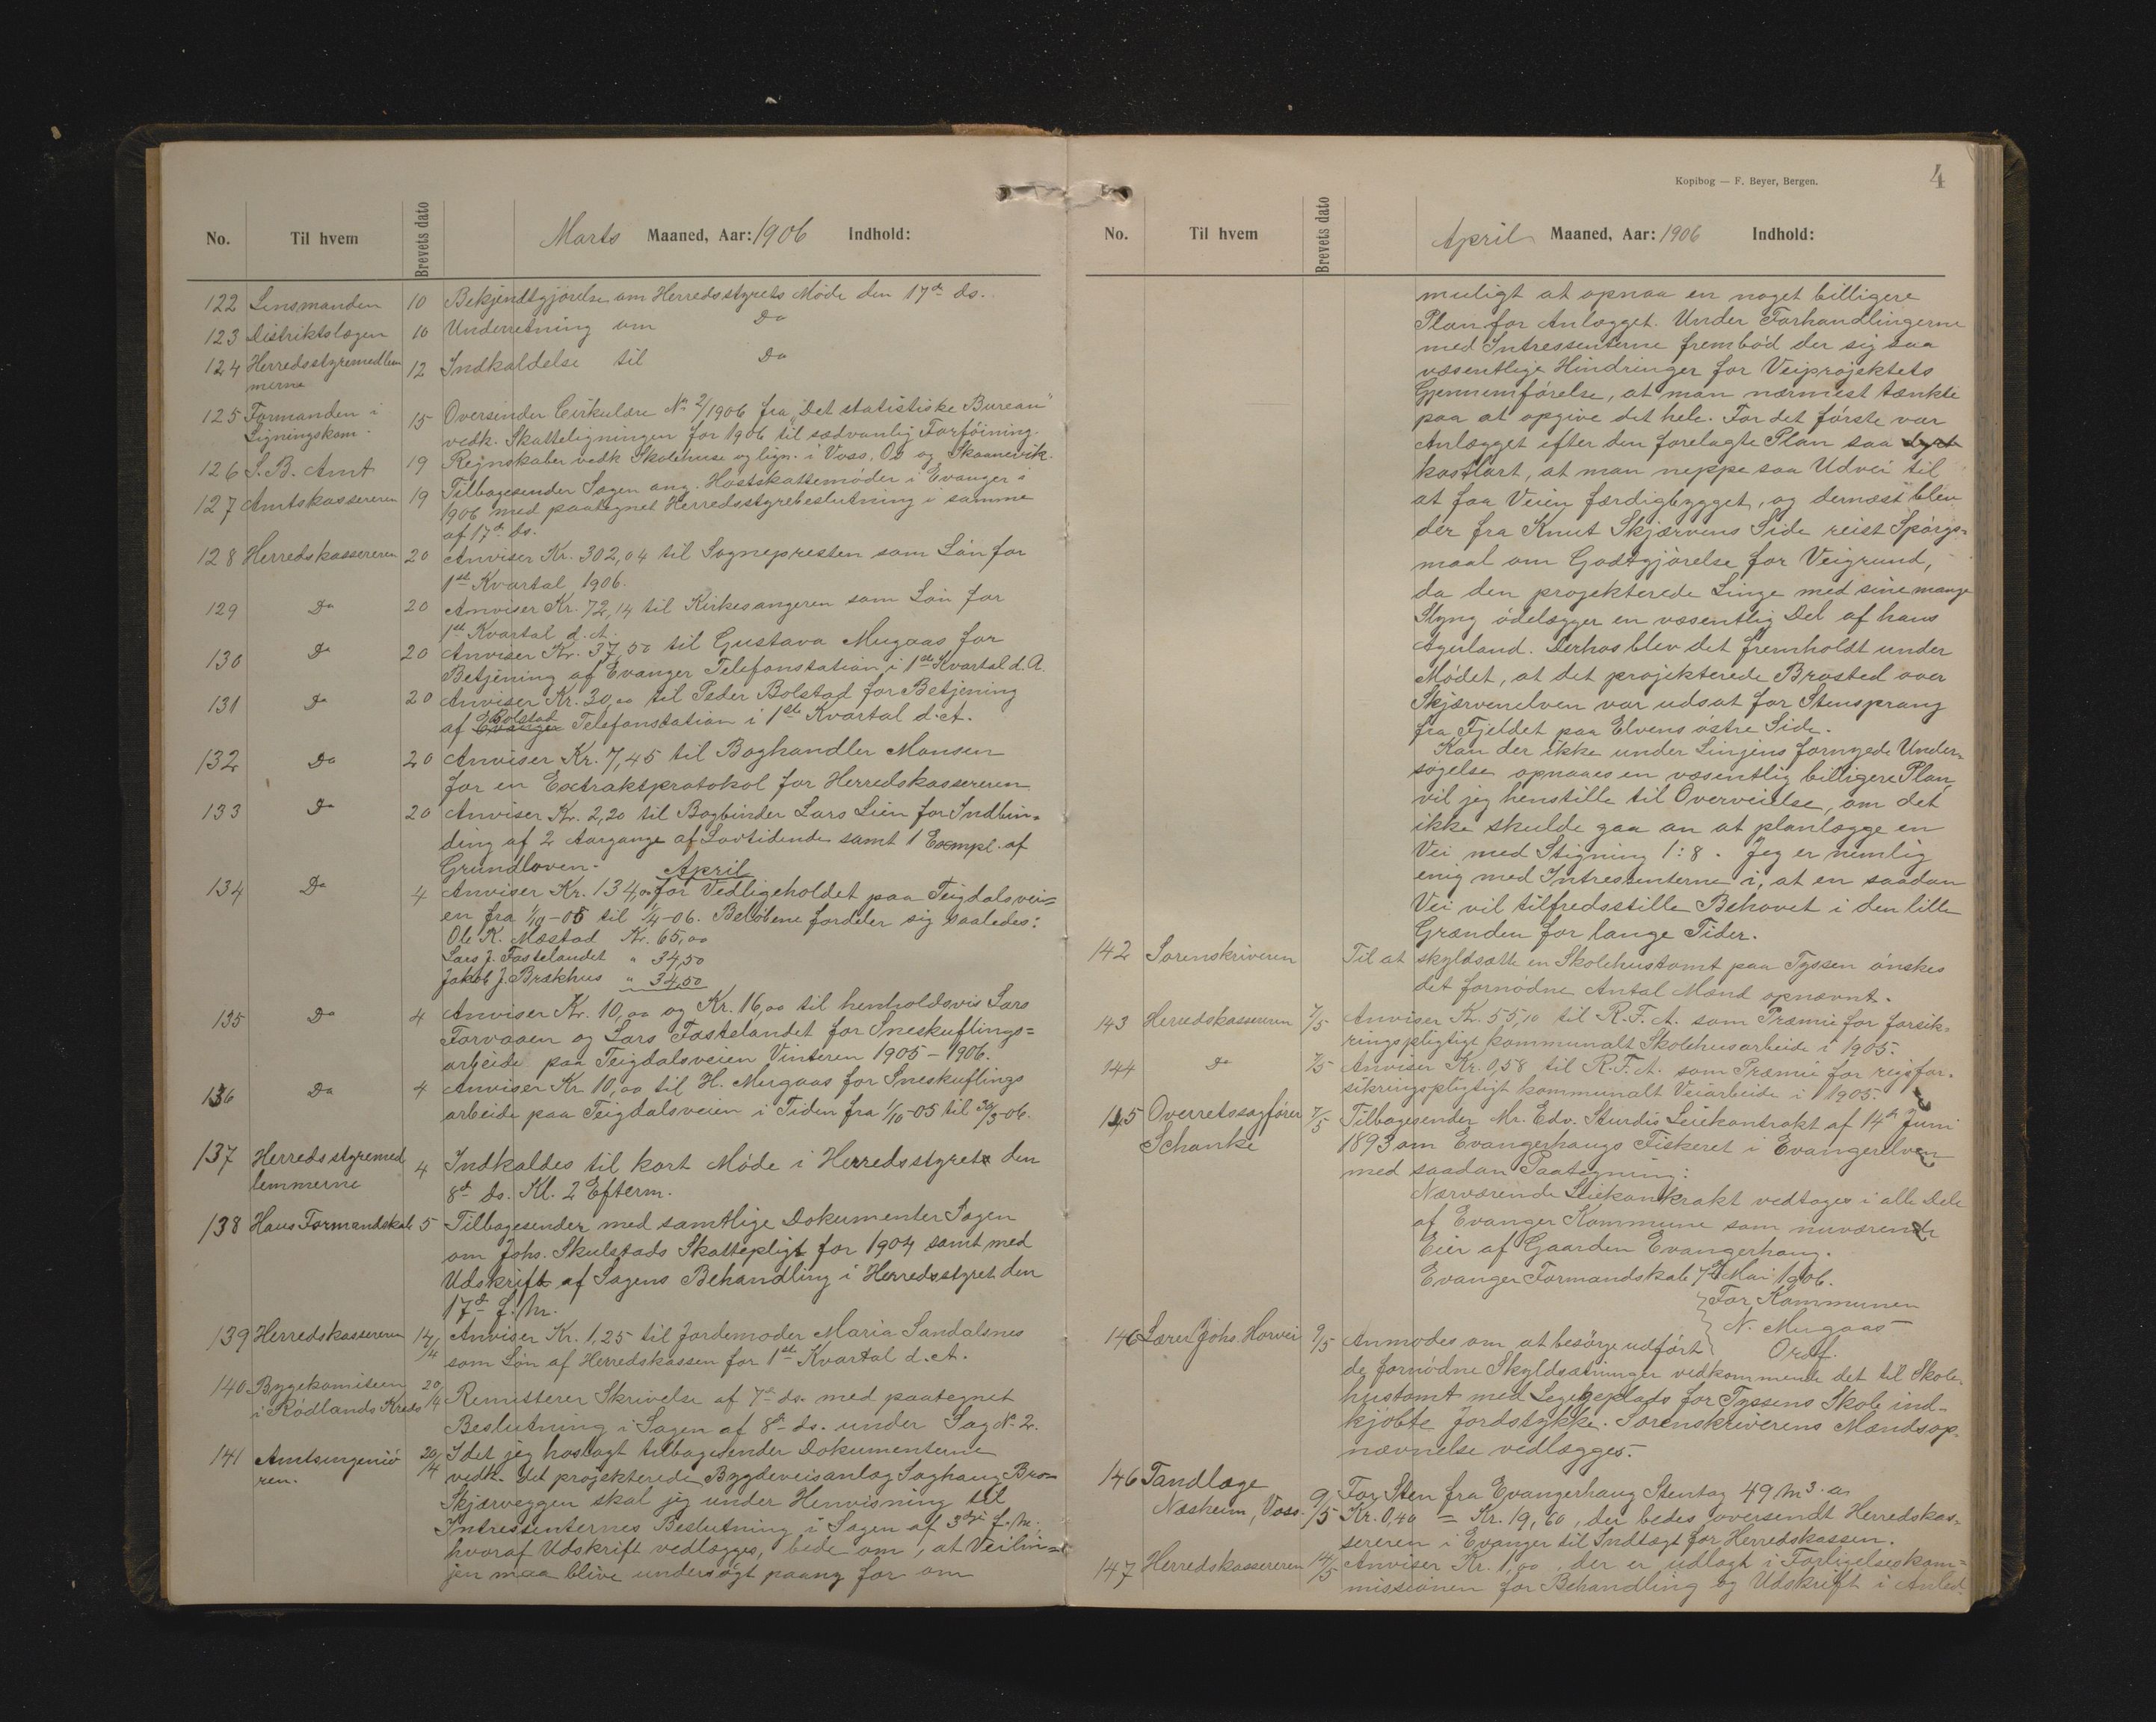 No. Til hvem Brevets dato Marts Maaned, Aar: 1906 Indhold:
122 Lensmanden 10 Bekjendtgjørelse om Herredsstyrets Møde den 17de ds.
123 Distriktslægen 10 Underretning om Do
124 Herredsstyremedlem 12 Indkaldelse til Do
merne
125 Formanden i 15 Oversender Cirkulære No 2/1906 fra "Det statistiske Bureau"
Ligningskom. vedk. Skatteligningen for 1906 til sædvanlig Forføining.
126 S. B. Amt 19 Regnskaber vedk Skolehuse og lign. i Voss, Os og Skaanevik.
127 Amtskassereren 19 Tilbagesender Sagen ang. Høstskattemøder i Evanger i
1906 med paategnet Herredsstyrebeslutning i samme
af 17de ds.
128 Herredskassereren 20 Anviser Kr. 302,04 til Sognepresten som Løn for
1st Kvartal 1906.
129 Do 20 Anviser Kr. 72,14 til Kirkesangeren som Løn for
1st Kvartal d. A.
130 Do 20 Anviser Kr. 37,50 til Gustava Mugaas for
Betjening af Evanger Telefonstation i 1ste Kvartal d. A.
131 Do 20 Anviser Kr. 30,00 til Peder Bolstad for Betjening
af Evanger Bolstad Telefonstation i 1ste Kvartal d. A.
132 Do 20 Anviser Kr. 7,45 til Boghandler Monsen
for en Extraktsprotokol for Herredskassereren
133 Do 20 Anviser Kr. 2,20 til Bogbinder Lars Lien for Indbin-
ding af 2 Aargange af Lovtidende samt 1 Exempl. af
Grundloven. April
134 Do 4 Anviser Kr. 134,00 for Vedligeholdet paa Teigdalsvei=
en fra 1/10-05 til 1/4-06. Beløbene fordeler sig saaledes:
Ole K. Mæstad Kr. 65,00
Lars J. Fastelandet " 34,50
Jakob J. Brækhus " 34,50
135 Do 4 Anviser Kr. 10,00 og Kr. 16,00 til henholdsvis Lars
Forvaaen og Lars Fastelandet for Sneskuflings=
arbeide paa Teigdalsveien Vinteren 1905-1906.
136 Do 4 Anviser Kr 10,00 til H. Mugaas for Sneskuflings
arbeide paa Teigdalsveien i Tiden fra 1/10-05 til 30/3-06.
137 Herredsstyremed 4 Indkaldes til kort Møde i Herredsstyret den
lemmerne 8de ds. Kl. 2 Efterm.
138 Haus Formandskab 5 Tilbagesender med samtlige Dokumenter Sagen
om Johs. Skulstads Skattepligt for 1904 samt med
Udskrift af Sagens Behandling i Herredsstyret den
17de f. M.
139 Herredskassereren 14/4 Anviser Kr. 1,25 til Jordemoder Maria Sandalsnes
som Løn af Herredskassen for 1st Kvartal d. A.
140 Bygekomiteen 20/4 Remitterer Skrivelse af 7de ds. med paategnet
i Rødlands Kreds Beslutning i Sagen af 8de ds. under Sag No 2.
141 Amtsingeniø 20/4 Idet jeg hoslagt tilbagesender Dokumenterne
ren. vedk. det projekterede Bygdeveisanlæg Saghaug Bro-
Skjærveggen skal jeg under Henvisning til
Intressenternes Beslutning i Sagen af 3dje f. M.,
hvoraf Udskrift vedlægges, bede om, at Veilin=
jen maa blive undersøgt paany for om
Kopibog — F. Beyer, Bergen. 4
No. Til hvem Brevets dato April Maaned, Aar: 1906 Indhold:
muligt at opnaa en noget billigere
Plan for Anlægget. Under Forhandlingerne
med Intressenterne frembød der sig saa
væsentlige Hindringer for Veiprojektets
Gjennemførelse, at man nærmest tænkte
paa at opgive det hele. For det første var
Anlægget efter den forelagte Plan saa dyrt
kostbart, at man neppe saa Udvei til
at faa Veien færdigbygget, og dernæst blev
der fra Knut Skjærvens Side reist Spørgs=
maal om Godtgjørelse for Veigrund,
da den projekterede Linje med sine mange
Slyng ødelægger en væsentlig Del af hans
Agerland. Derhos blev det fremholdt under
Mødet, at det projekterede Brosted over
Skjærvenelven var udsat for Stensprang
fra Fjeldet paa Elvens østre Side.
Kan der ikke under Linjens fornyede Under-
søgelse opnaaes en væsentlig billigere Plan,
vil jeg henstille til Overveielse, om det
ikke skulde gaa an at planlægge en
Vei med Stigning 1:8. Jeg er nemlig
enig med Intressenterne i, at en saadan
Vei vil tilfredsstille Behovet i den lille
Grænden for lange Tider.
142 Sorenskriveren Til at skyldsætte en Skolehustomt paa Tyssen ønskes
det fornødne Antal Mænd opnævnt.
143 Herredskassereren 7/5 Anviser Kr. 55,10 til R. F. A. som Præmie for forsik-
ringspligtige kommunalt Skolehusarbeide i 1905.
144 Do 7/5 Anviser Kr. 0,58 til R. F. A. som Præmie for rigsfor-
sikringspligtigt kommunalt Veiarbeide i 1905.
145 Overretssagfører 7/5 Tilbagesender Mr. Edv. Sturdis Leiekontrakt af 14de Juni
Schanke 1893 om Evangerhaugs Fiskeret i Evangerelven
med saadan Paategning:
Nærværende Leiekontrakt vedtages i alle Dele
af Evanger Kommune som nuværende
Eier af Gaarden Evangerhaug.
Evanger Formandskab 7de Mai 1906.
For Kommunen
N. Mugaas
Ordf.
146 Lærer Johs. Horvei 9/5 Anmodes om at besørge udført
de fornødne Skyldsætninger vedkommende det til Skole-
hustomt med Legegeplads for Tyssens Skole ind-
kjøbte Jordstykke. Sorenskriverens Mændsop-
nævnelse vedlægges.
146 Tandlæge
Næsheim, Voss. 9/5 For Sten fra Evangerhaug Stentag 49 M3. a
Kr. 0,40 = Kr. 19,60, der bedes oversendt Herredskas=
sereren i Evanger til Indtægt for Herredskassen.
147 Herredskassereren 14/5 Anviser Kr. 1,00, der er udlagt i Forligelseskom=
missionen for Behandling og Udskrift i Anled